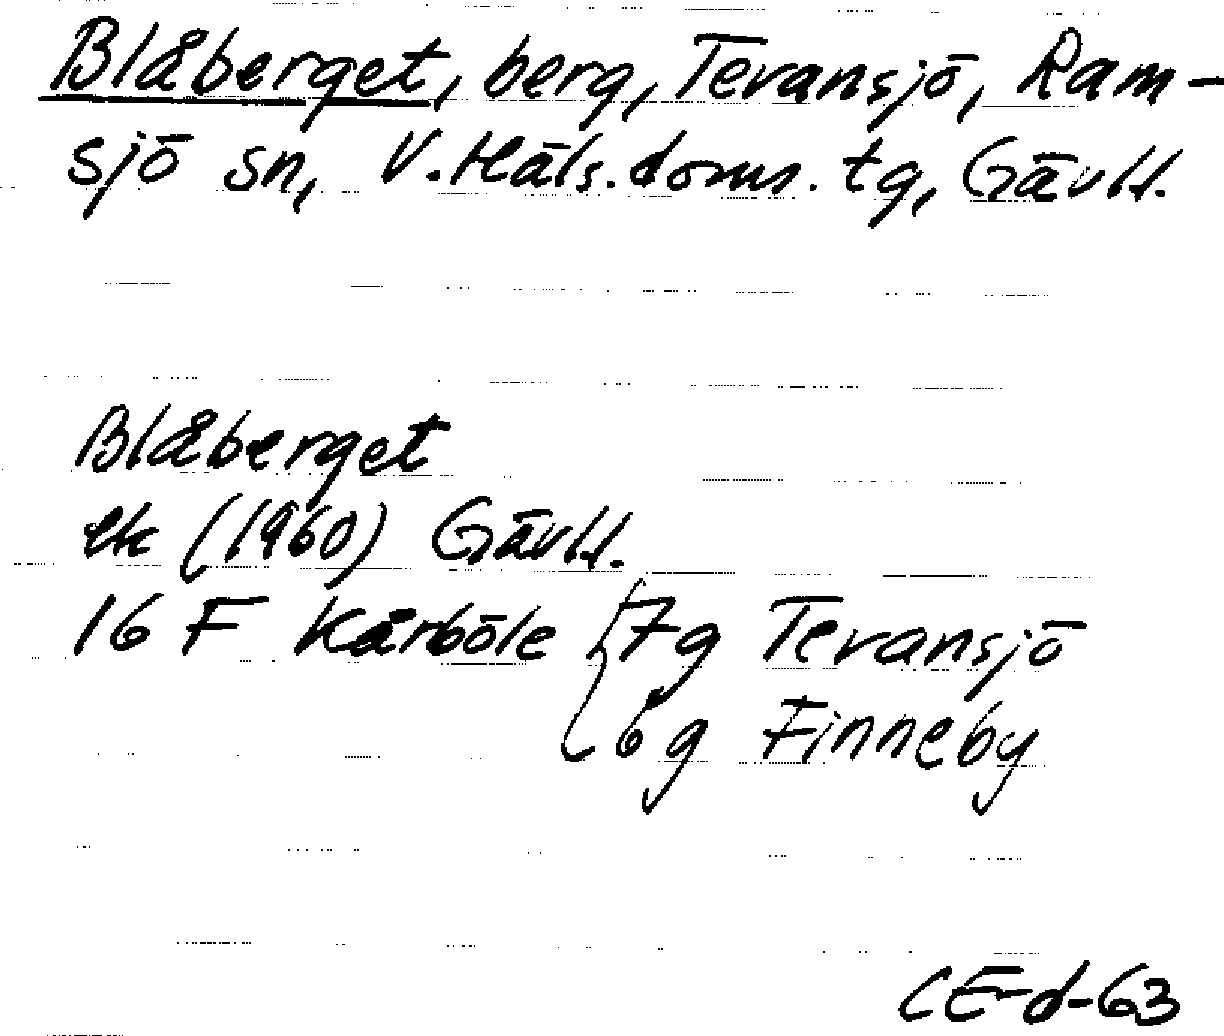 Blåberget, berg, Tevansjö, Ram-
sjö sn, V. Häls. doms. tg, Gävl.l.
Blåberget
ek (1960) Gävl.l.
16 F Kårböle { 7g Tevansjö
6g Finneby
CE-d-63